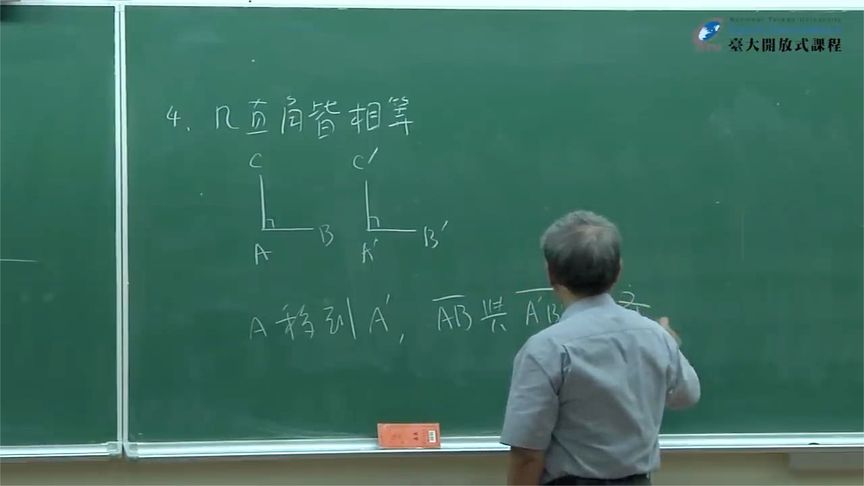 National Taiwan University
臺大開放式課程
4. 凡直角皆相等
C C'
A B A' B'
A 移到 A', AB 與 A'B